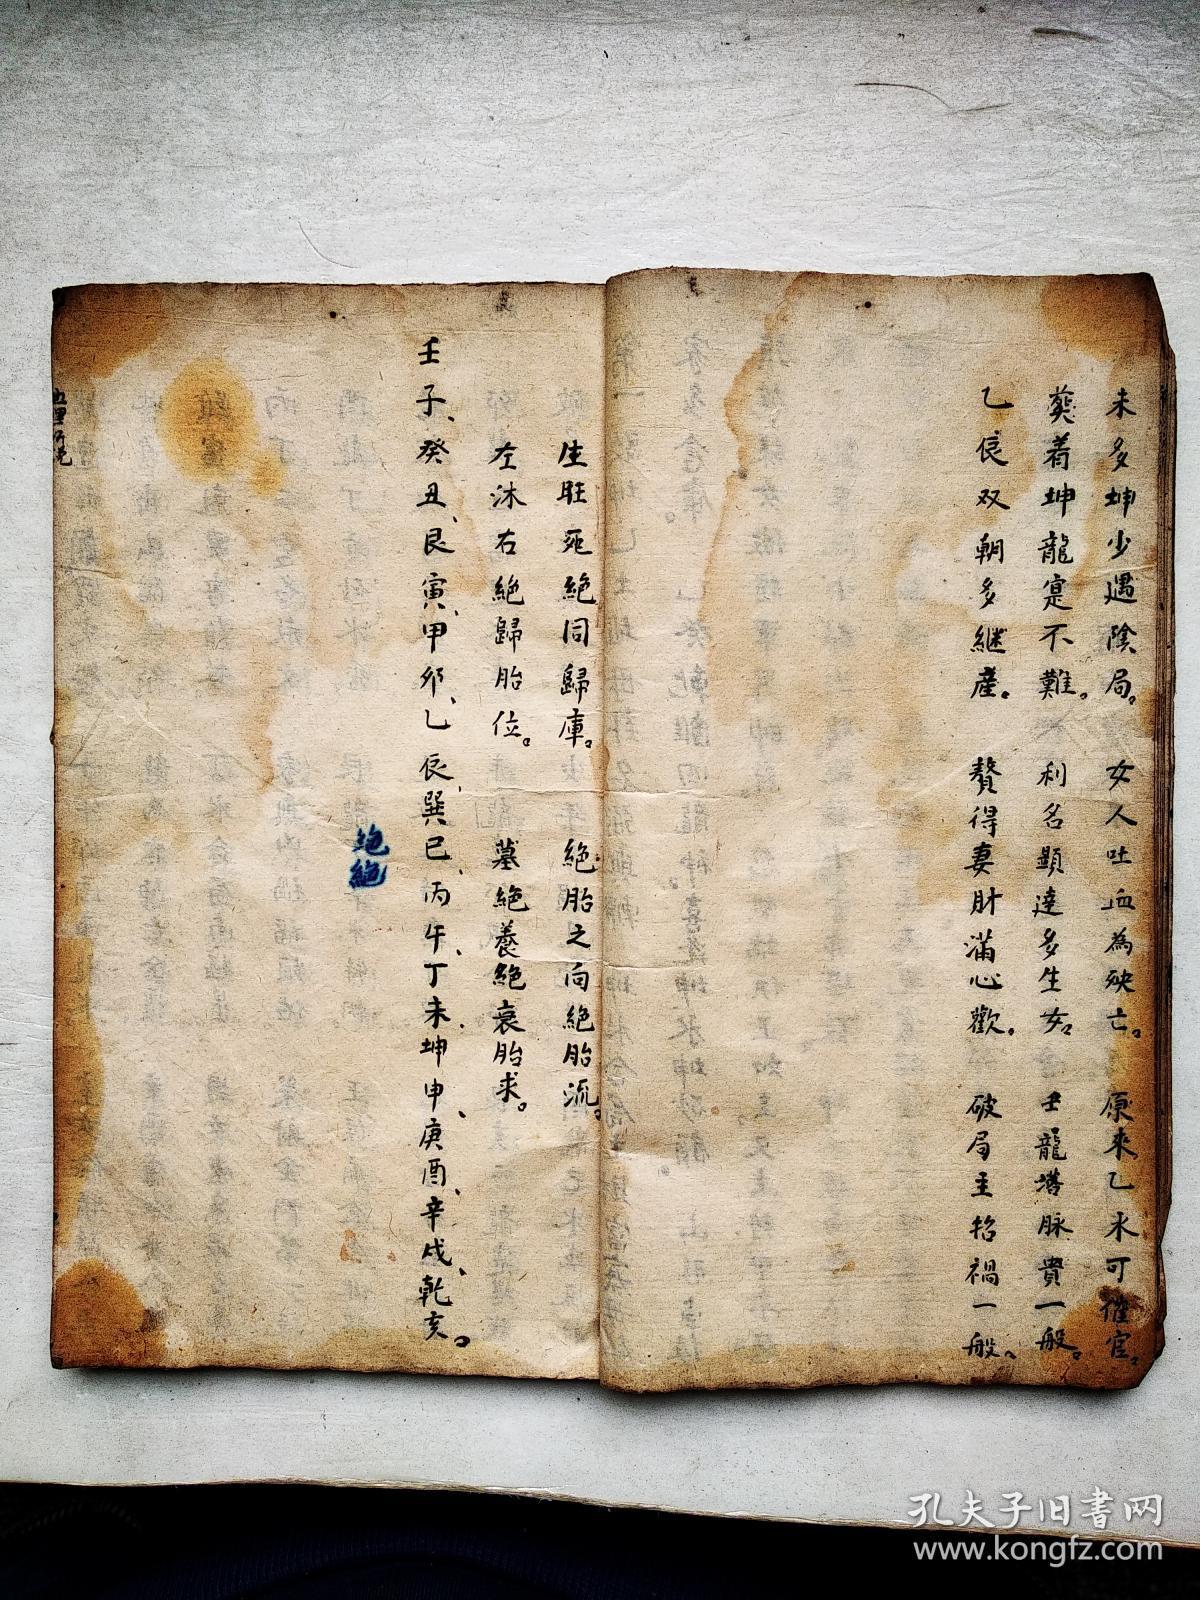 未多坤少遇陰局。女人吐血為殃亡。原來乙水可催官。
葬着坤龍寔不難。利名顯達多生女。壬龍落脉貴一般。
乙辰双朝多繼產。贅得妻財滿心歡。破局主招禍一般。
生旺死絕同歸庫。絕胎之向絕胎流。
左沐右絕歸胎位。墓絕養絕衰胎求。
壬子、癸丑、艮寅、甲卯、乙辰、巽巳、丙午、丁未、坤申、庚酉、辛戌、乾亥。
绝絕
孔夫子旧書网
www.kongfz.com